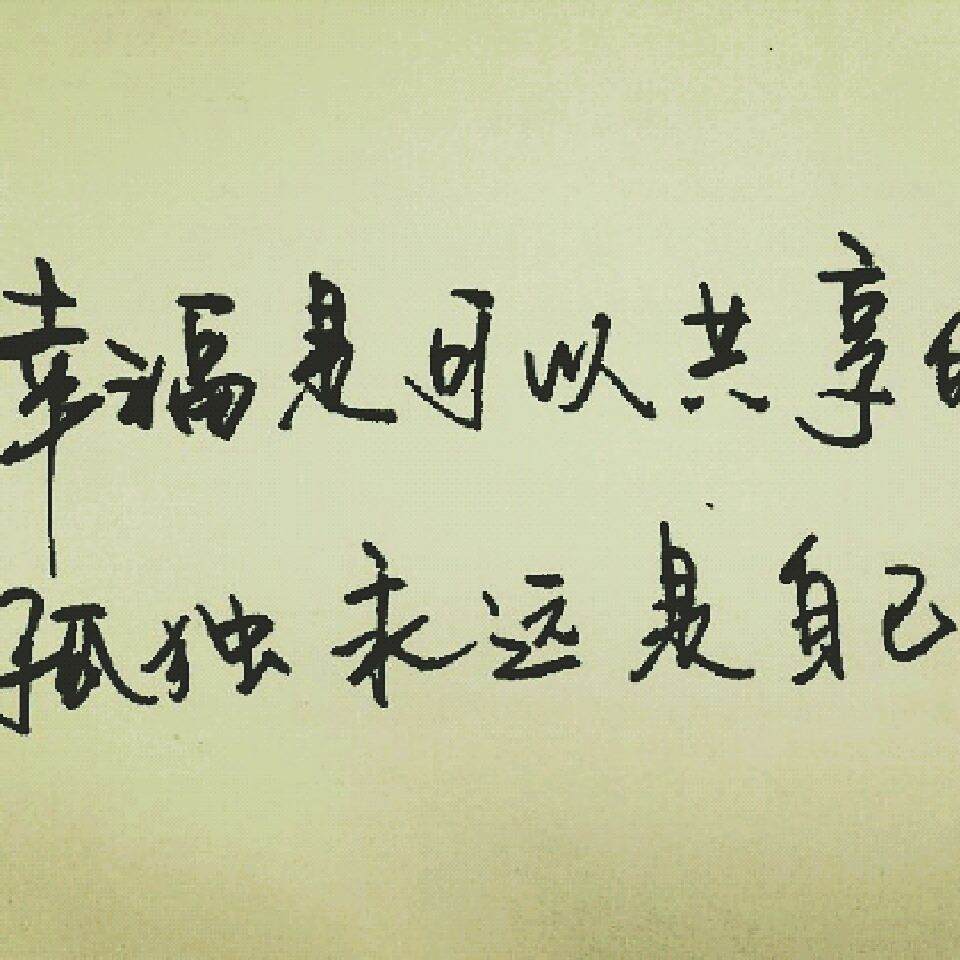 幸福是可以共享的
孤独永远是自己